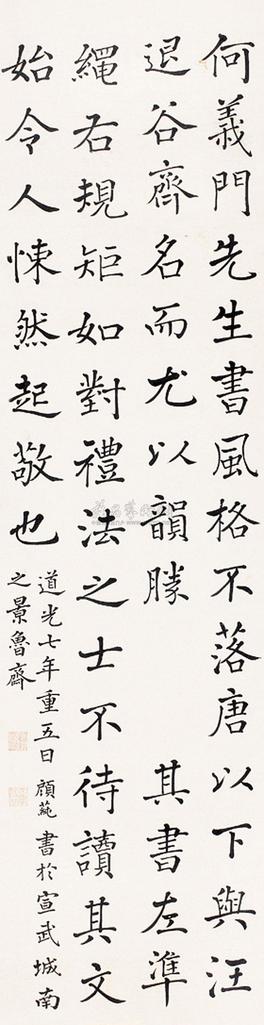 何義門先生書風格不落唐以下與汪
退谷齊名而尤以韻勝 其書左準
繩右規矩如對禮法之士不待讀其文
始令人悚然起敬也
道光七年重五日顧蒓書於宣武城南
之景魯齋